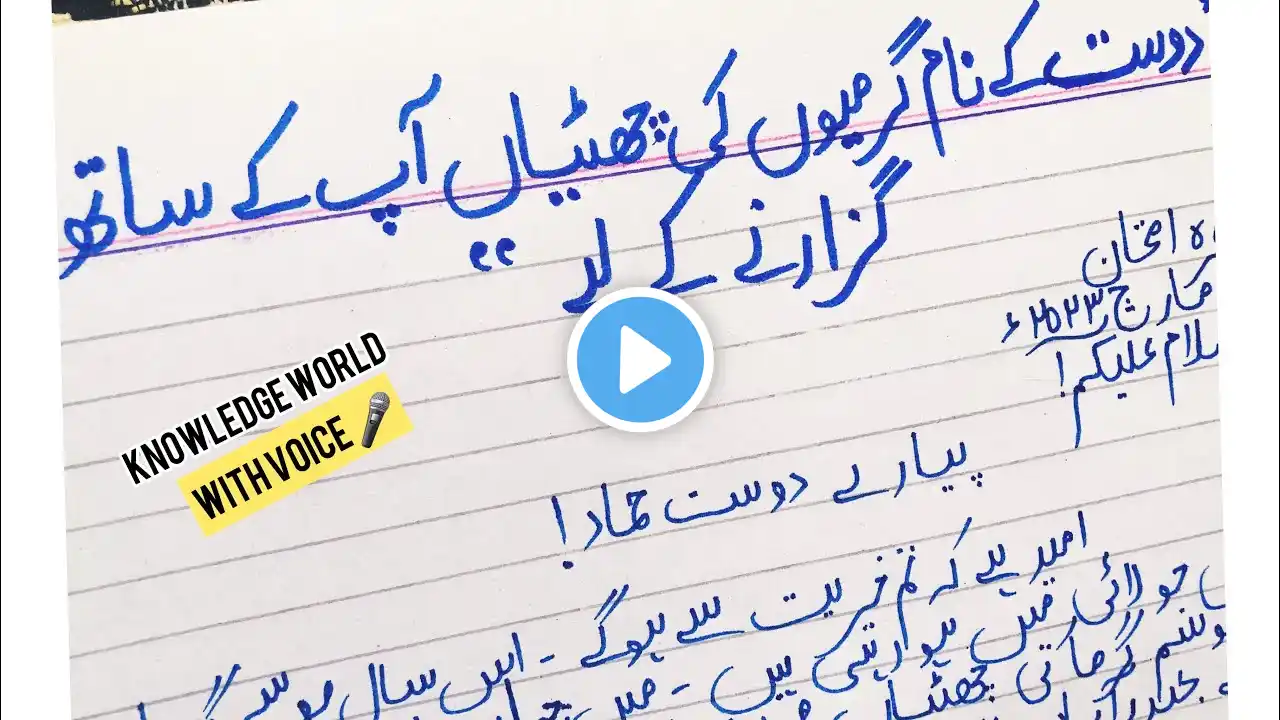 دوست کے نام گرمیوں کی چھٹیاں آپ کے ساتھ
گزارنے کے لیے ““
ہ امتحان
مارچ ۲۰۲۳ء
سلام علیکم!
KNOWLEDGE WORLD
WITH VOICE
پیارے دوست حماد!
امید ہے کہ تم خریت سے ہوگے - اس سال موسم
جولائی میں ہو رہیں ہیں - میں
موسم گرما کی چھٹیاں